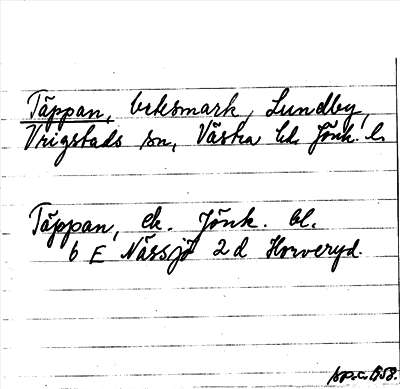 Täppan, betesmark, Lundby,
Vrigstads sn, Västra hd. Jönk. l.
Täppan, ek. Jönk. bl.
6 E Nässjö 2 d Horveryd.
1958.